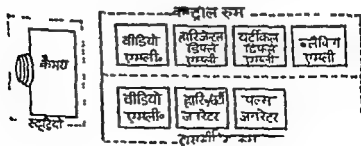 कन्ट्रोल रूम
कैमरा
स्टूडियो
वीडियो
एम्पली॰
हारिजेन्टल
डिफ्ले
एम्पली
वर्टीकल
डिफ्ले
एम्पली
एम्पली
वीडियो
एम्पली॰
जनरेटर
पल्स
जनरेटर